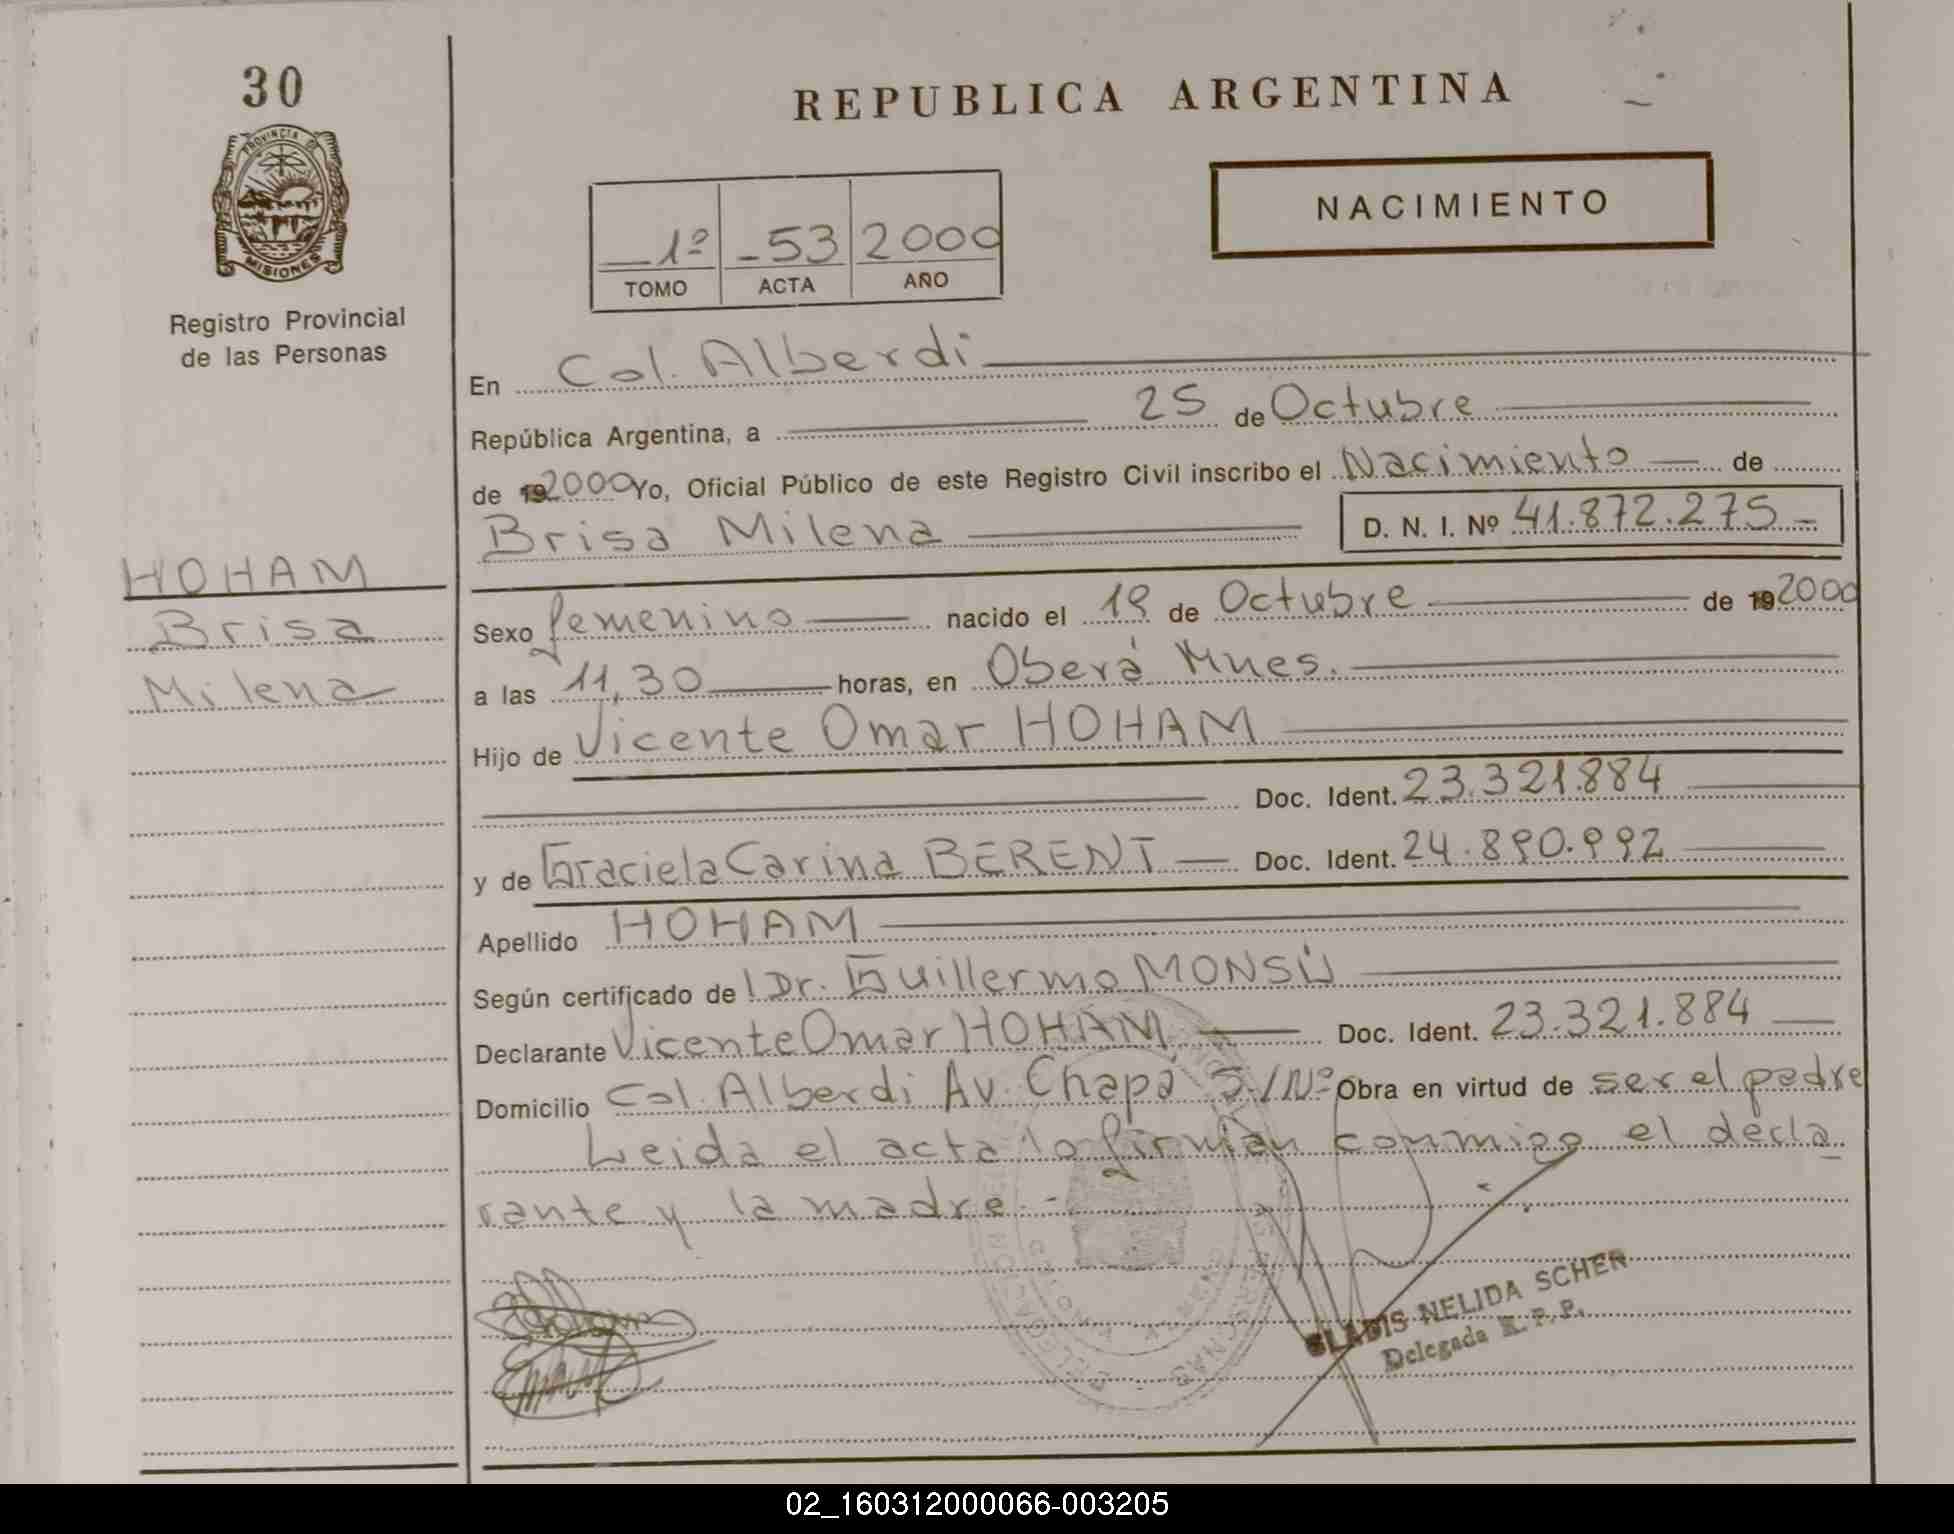 30
PROVINCIA DE
MISIONES
Registro Provincial
de las Personas
HOHAM
Brisa
Milena
REPUBLICA ARGENTINA
NACIMIENTO
1º 53 2000
TOMO ACTA AÑO
En Col. Alberdi
República Argentina, a 25 de Octubre
de 192000 Yo, Oficial Público de este Registro Civil inscribo el Nacimiento de
Brisa Milena D. N. I. Nº 41.872.275
Sexo femenino nacido el 19 de Octubre de 192000
a las 11,30 horas, en Oberá Mnes.
Hijo de Vicente Omar HOHAM
Doc. Ident. 23.321.884
y de Graciela Carina BERENT Doc. Ident. 24.890.992
Apellido HOHAM
Según certificado de l Dr. Guillermo MONSÚ
Declarante Vicente Omar HOHAM Doc. Ident. 23.321.884
Domicilio Col. Alberdi Av. Chapá S/Nº Obra en virtud de ser el padre
Leida el acta lo firman conmigo el decla
rante y la madre.-
GLADIS NELIDA SCHER
Delegada R. P. P.
02_160312000066-003205